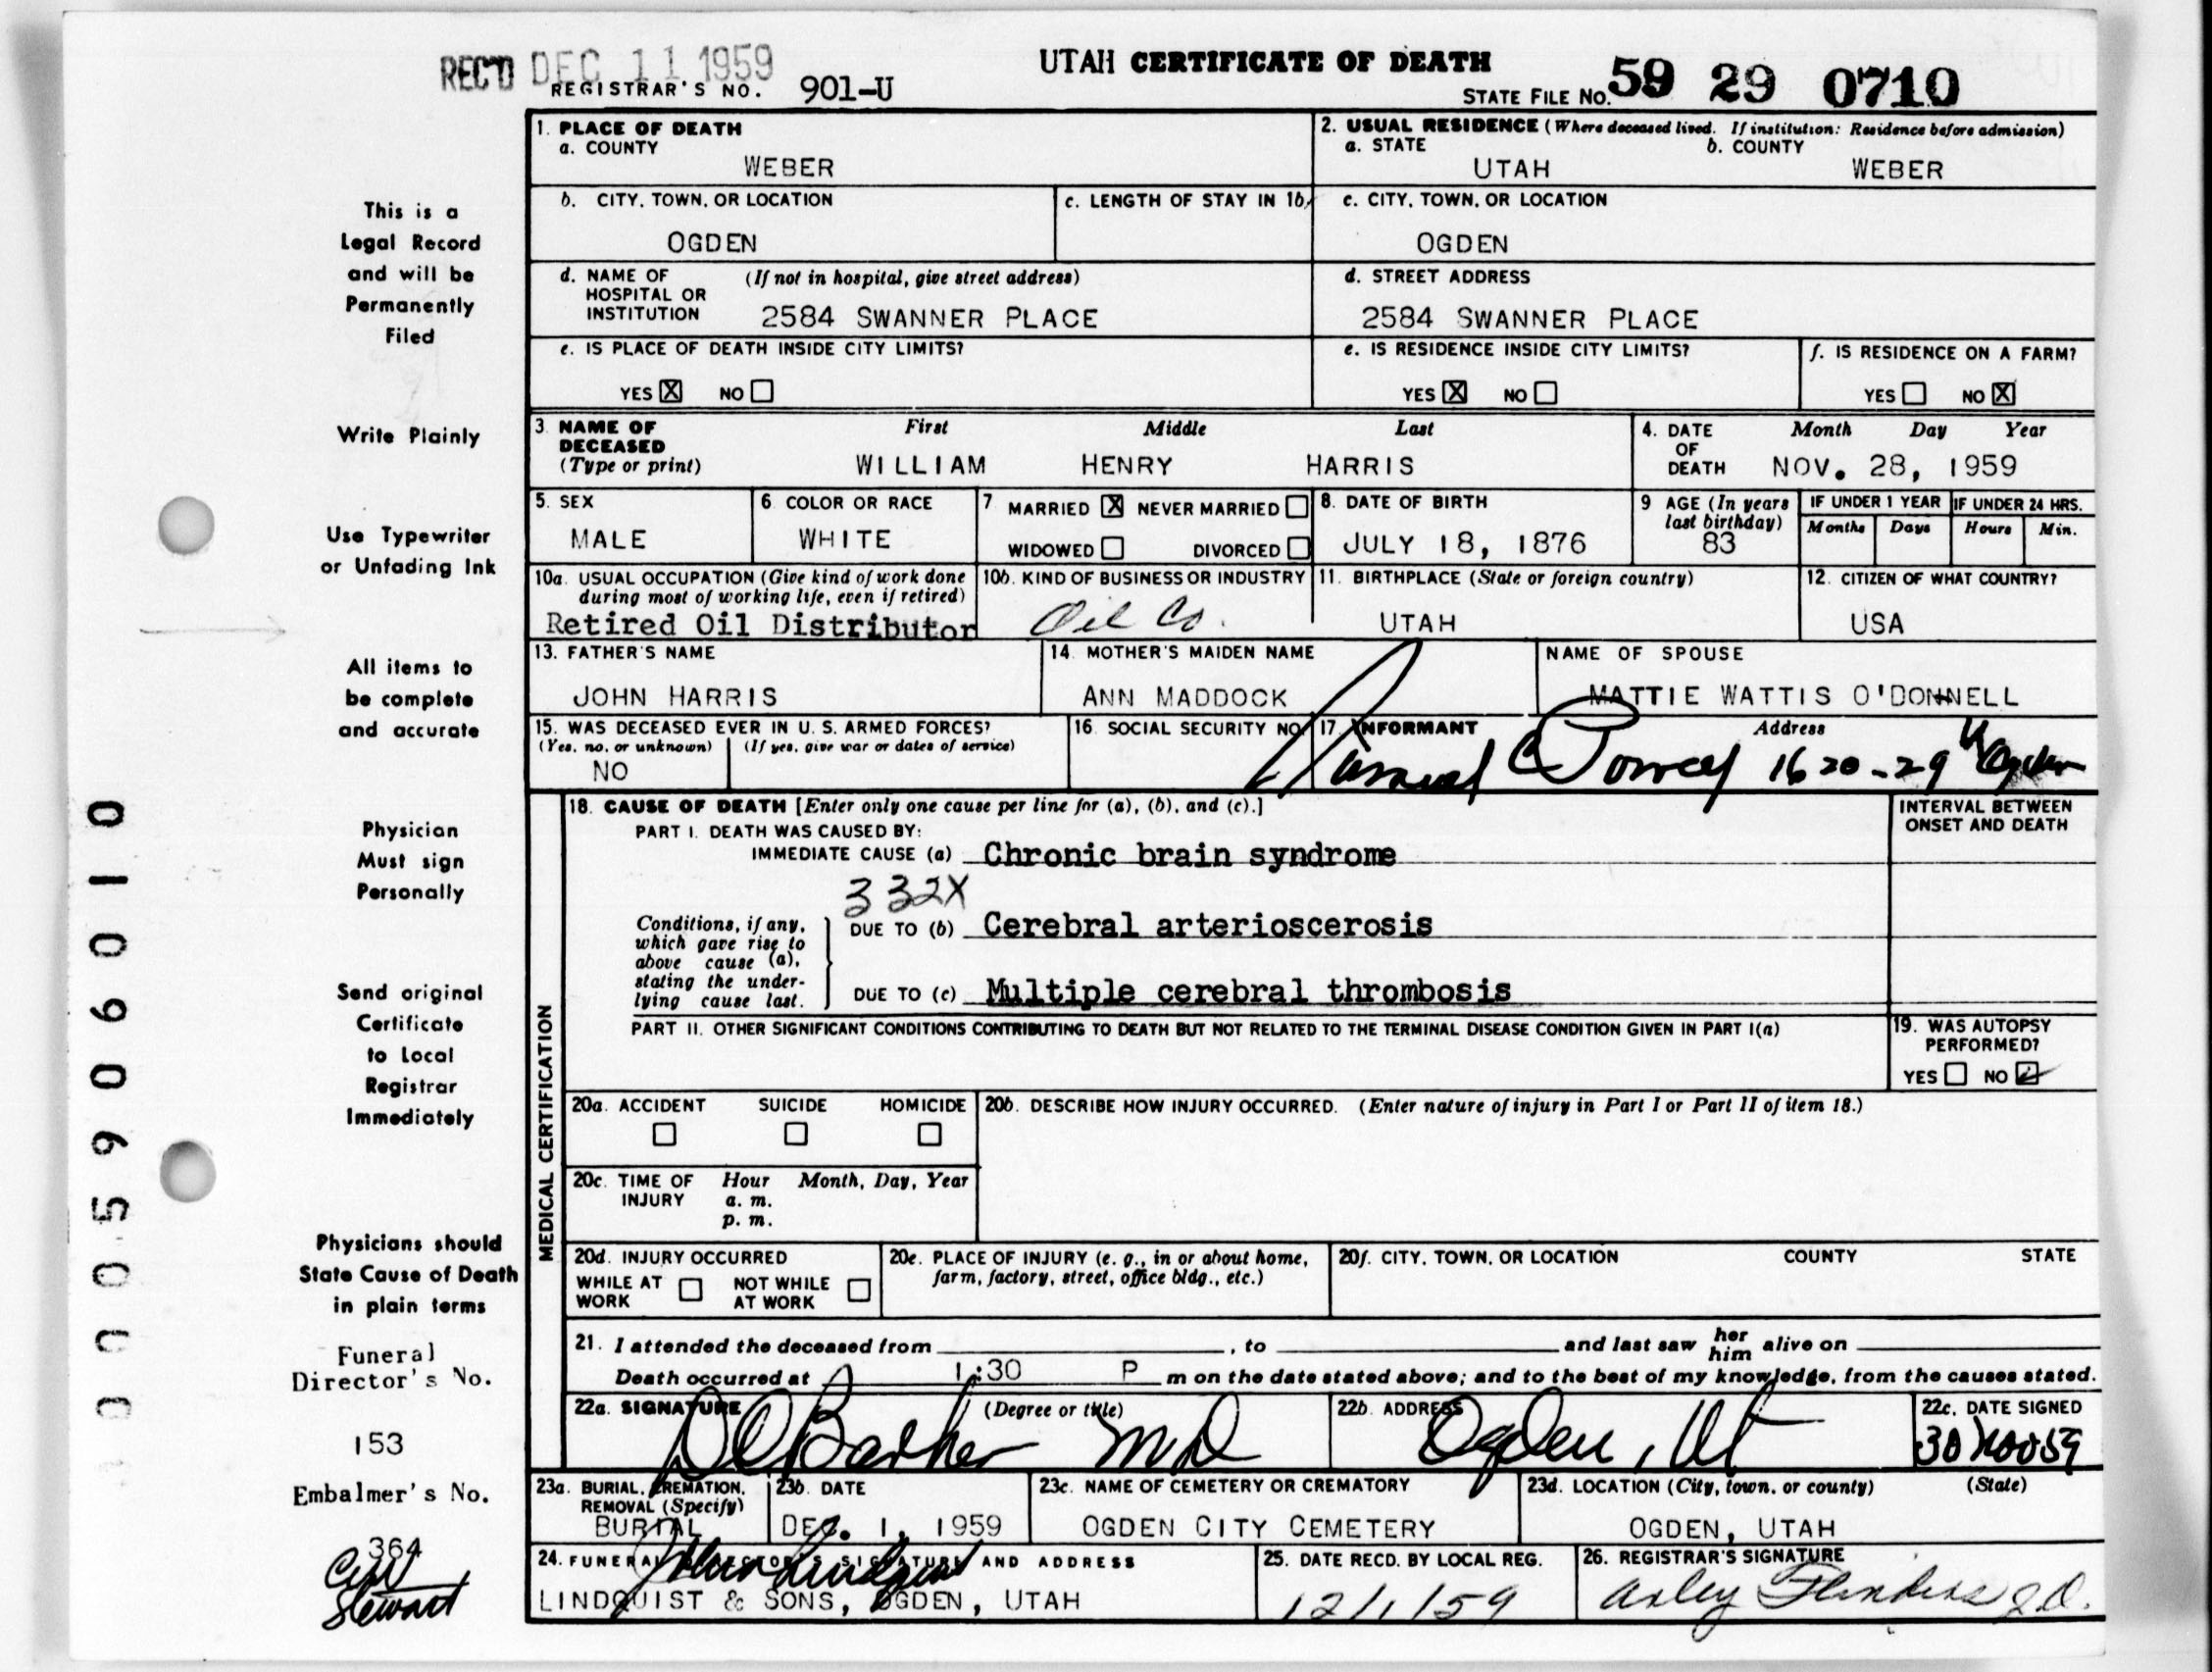 REC'D DEC 11 1959
UTAH CERTIFICATE OF DEATH
REGISTRAR'S NO. 901-U
STATE FILE NO. 59 29 0710
1. PLACE OF DEATH
a. COUNTY
WEBER
2. USUAL RESIDENCE (Where deceased lived. If institution: Residence before admission)
a. STATE b. COUNTY
UTAH WEBER
b. CITY, TOWN, OR LOCATION
OGDEN
c. LENGTH OF STAY IN 1b
c. CITY, TOWN, OR LOCATION
OGDEN
d. NAME OF (If not in hospital, give street address)
HOSPITAL OR
INSTITUTION 2584 SWANNER PLACE
d. STREET ADDRESS
2584 SWANNER PLACE
e. IS PLACE OF DEATH INSIDE CITY LIMITS?
YES X NO
e. IS RESIDENCE INSIDE CITY LIMITS?
YES X NO
f. IS RESIDENCE ON A FARM?
YES NO X
3. NAME OF First Middle Last
DECEASED
(Type or print) WILLIAM HENRY HARRIS
4. DATE Month Day Year
OF
DEATH NOV. 28, 1959
5. SEX
MALE
6. COLOR OR RACE
WHITE
7 MARRIED X NEVER MARRIED
WIDOWED DIVORCED
8. DATE OF BIRTH
JULY 18, 1876
9 AGE (In years
last birthday)
83
IF UNDER 1 YEAR IF UNDER 24 HRS.
Months Days Hours Min.
10a. USUAL OCCUPATION (Give kind of work done
during most of working life, even if retired)
Retired Oil Distributor
10b. KIND OF BUSINESS OR INDUSTRY
Oil Co.
11. BIRTHPLACE (State or foreign country)
UTAH
12. CITIZEN OF WHAT COUNTRY?
USA
13. FATHER'S NAME
JOHN HARRIS
14. MOTHER'S MAIDEN NAME
ANN MADDOCK
NAME OF SPOUSE
MATTIE WATTIS O'DONNELL
15. WAS DECEASED EVER IN U. S. ARMED FORCES?
(Yes, no, or unknown) (If yes, give war or dates of service)
NO
16. SOCIAL SECURITY NO.
17. INFORMANT Address
1620-29 Ogden
MEDICAL CERTIFICATION
18. CAUSE OF DEATH [Enter only one cause per line for (a), (b), and (c).]
INTERVAL BETWEEN
ONSET AND DEATH
PART I. DEATH WAS CAUSED BY:
IMMEDIATE CAUSE (a) Chronic brain syndrome
332X
Conditions, if any,
which gave rise to
above cause (a),
stating the under-
lying cause last.
DUE TO (b) Cerebral arterioscerosis
DUE TO (c) Multiple cerebral thrombosis
PART II. OTHER SIGNIFICANT CONDITIONS CONTRIBUTING TO DEATH BUT NOT RELATED TO THE TERMINAL DISEASE CONDITION GIVEN IN PART I(a)
19. WAS AUTOPSY
PERFORMED?
YES NO
20a. ACCIDENT SUICIDE HOMICIDE
20b. DESCRIBE HOW INJURY OCCURRED. (Enter nature of injury in Part I or Part II of item 18.)
20c. TIME OF Hour Month, Day, Year
INJURY a. m.
p. m.
20d. INJURY OCCURRED
WHILE AT
WORK
NOT WHILE
AT WORK
20e. PLACE OF INJURY (e. g., in or about home,
farm, factory, street, office bldg., etc.)
20f. CITY, TOWN, OR LOCATION COUNTY STATE
21. I attended the deceased from , to and last saw her him alive on
Death occurred at 1:30 P m on the date stated above; and to the best of my knowledge, from the causes stated.
22a. SIGNATURE (Degree or title)
MD
22b. ADDRESS
Ogden, Ut
22c. DATE SIGNED
30 Nov 59
23a. BURIAL, CREMATION,
REMOVAL (Specify)
BURIAL
23b. DATE
DEC. 1, 1959
23c. NAME OF CEMETERY OR CREMATORY
OGDEN CITY CEMETERY
23d. LOCATION (City, town, or county) (State)
OGDEN, UTAH
24. FUNERAL DIRECTOR'S SIGNATURE AND ADDRESS
LINDQUIST & SONS, OGDEN, UTAH
25. DATE RECD. BY LOCAL REG.
12/1/59
26. REGISTRAR'S SIGNATURE
This is a
Legal Record
and will be
Permanently
Filed
Write Plainly
Use Typewriter
or Unfading Ink
All items to
be complete
and accurate
Physician
Must sign
Personally
Send original
Certificate
to Local
Registrar
Immediately
Physicians should
State Cause of Death
in plain terms
Funeral
Director's No.
153
Embalmer's No.
364
Stewart
0005906010